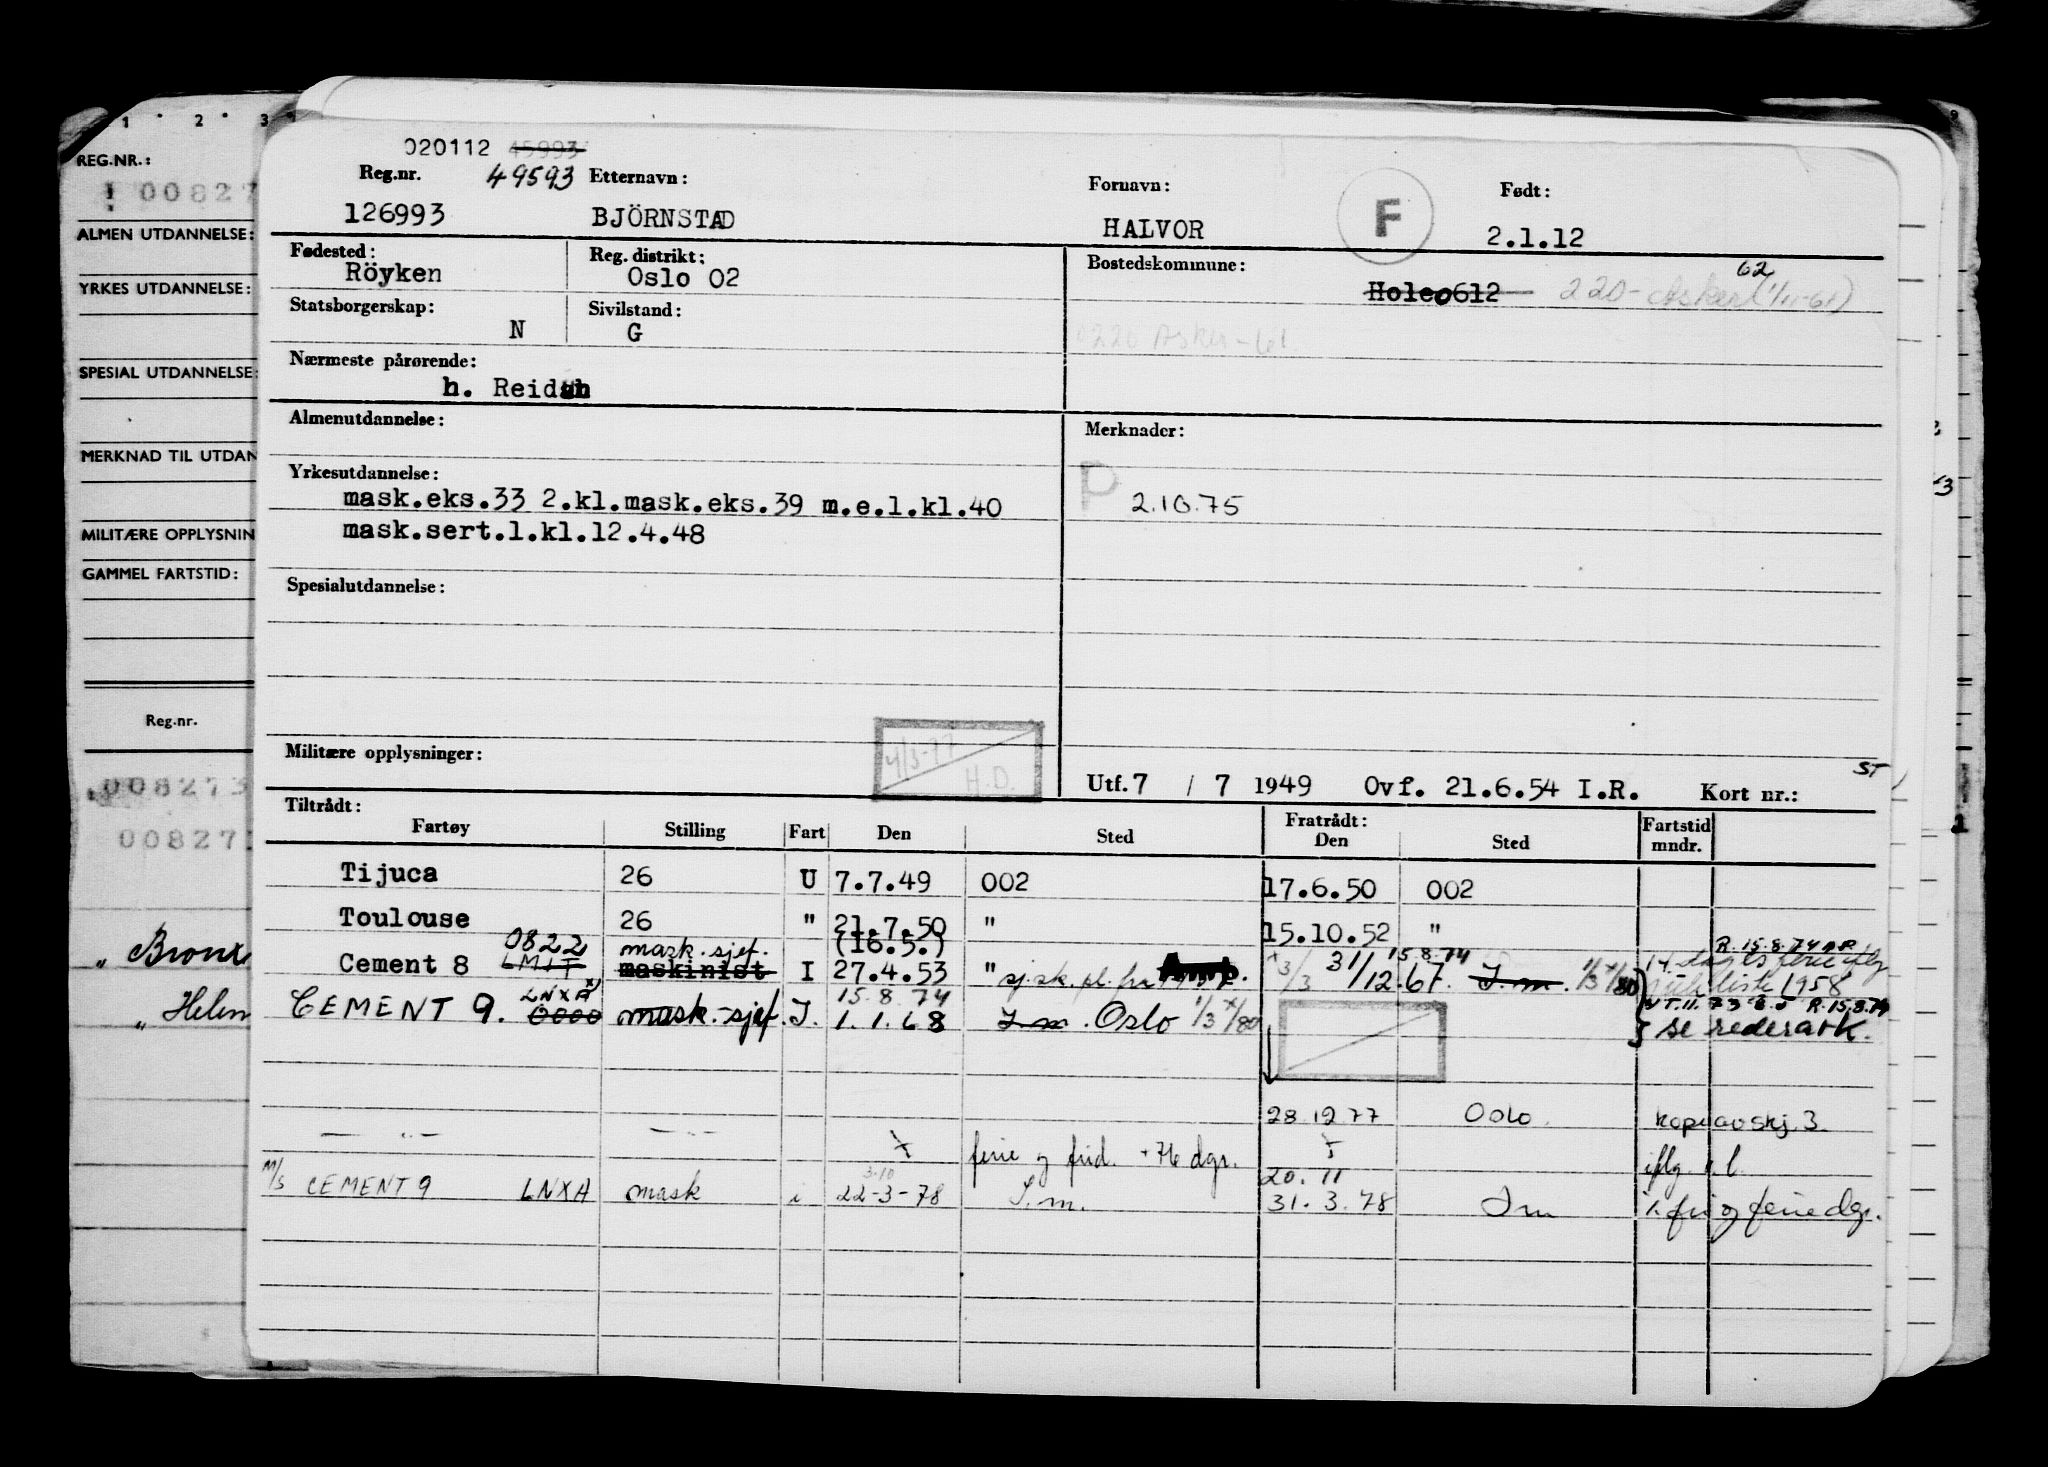 1 2 3
REG.NR.:
00827
ALMEN UTDANNELSE:
YRKES UTDANNELSE:
SPESIAL UTDANNELSE:
MERKNAD TIL UTDAN
MILITÆRE OPPLYSNIN
GAMMEL FARTSTID:
Reg.nr.
008273
00827
" Bronx
" Helen
020112 45993
Reg.nr. 49593 Etternavn: Fornavn: F Født:
126993 BJÖRNSTAD HALVOR 2.1.12
Fødested: Reg. distrikt: Bostedskommune:
Röyken Oslo 02 Hole0612 220-Asker (1/11-61) 62
Statsborgerskap: Sivilstand:
N G 0220 Asker-61
Nærmeste pårørende:
h. Reidun
Almenutdannelse: Merknader:
Yrkesutdannelse:
mask.eks.33 2.kl.mask.eks.39 m.e.1.kl.40 P 2.10.75
mask.sert.1.kl.12.4.48
Spesialutdannelse:
Militære opplysninger: 4/3-77 H.D.
Utf. 7 / 7 1949 Ovf. 21.6.54 I.R. Kort nr.: ST
Tiltrådt: Fratrådt: Fartstid
Fartøy Stilling Fart Den Sted Den Sted mndr.
Tijuca 26 U 7.7.49 002 17.6.50 002
Toulouse 26 " 21.7.50 " 15.10.52 "
0822 mask.sjef. (16.5.) 15.8.74 R. 15.8.74
Cement 8 LMIT maskinist I 27.4.53 " sj.sk.pl. fra 3/3 31/12.67. I.m. 1/3 80 1958
LNXA 15.8.74 R. 15.8.74
CEMENT 9. 0000 mask.-sjef. I. 1.1.68 I.m. Oslo 1/3 80 se rederark.
28.12.77 Oslo.
ferie og frid. + 76 dgr. 20.11 iflg.
3-10
M/S CEMENT 9 LNXA mask i 22-3-78 I.m. 31.3.78 Im fri og feriedgr.